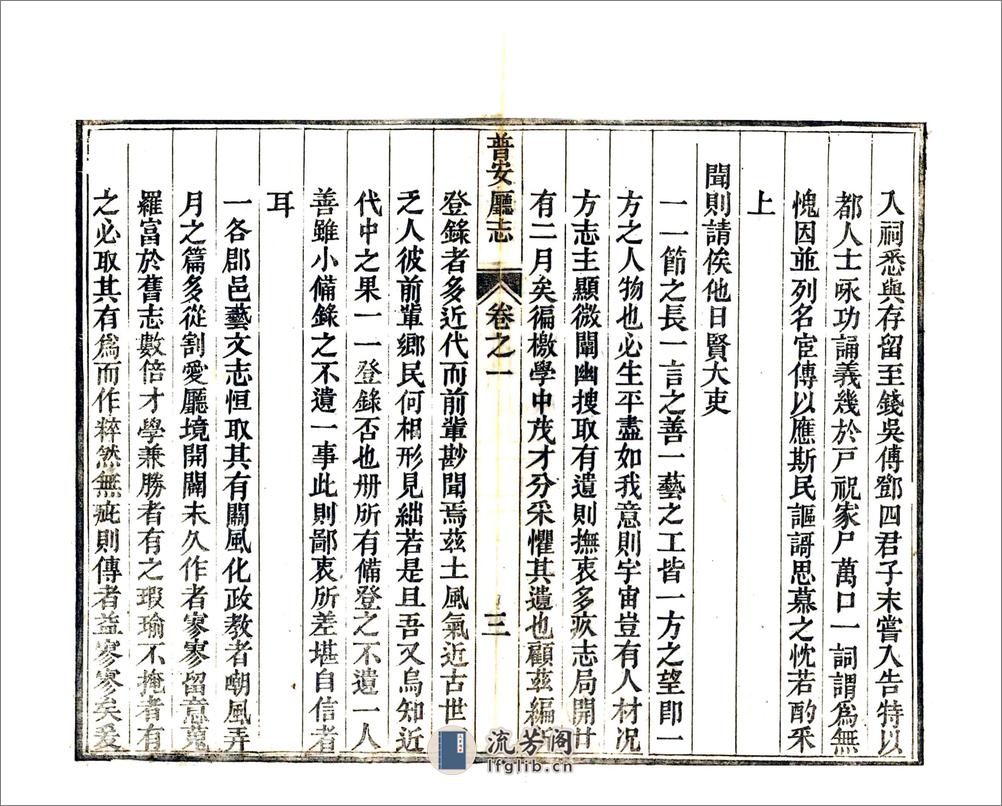 入祠悉與存留至錢吳傅鄧四君子未嘗入告特以
都人士咏功誦義幾於戸祝家尸萬口一詞謂爲無
愧因並列名宦傳以應斯民謳謌思慕之忱若酌采
上
聞則請俟他日賢大吏
一一節之長一言之善一藝之工皆一方之望即一
方之人物也必生平盡如我意則宇宙豈有人材况
方志主顯微闡幽搜取有遺則撫衷多疚志局開廿
有二月矣徧檄學中茂才分采懼其遺也顧茲編所
普安廳志 卷之一 三
登錄者多近代而前軰尠聞焉茲土風氣近古世不
乏人彼前軰鄉民何相形見絀若是且吾又烏知近
代中之果一一登錄否也册所有備登之不遺一人
善雖小備錄之不遺一事此則鄙衷所差堪自信者
耳
一各郡邑藝文志恒取其有關風化政教者嘲風弄
月之篇多從割愛廳境開闢未久作者寥寥留意蒐
羅富於舊志數倍才學兼勝者有之瑕瑜不掩者有
之必取其有爲而作粹然無疵則傳者益寥寥矣爰
流芳阁
lfglib.cn